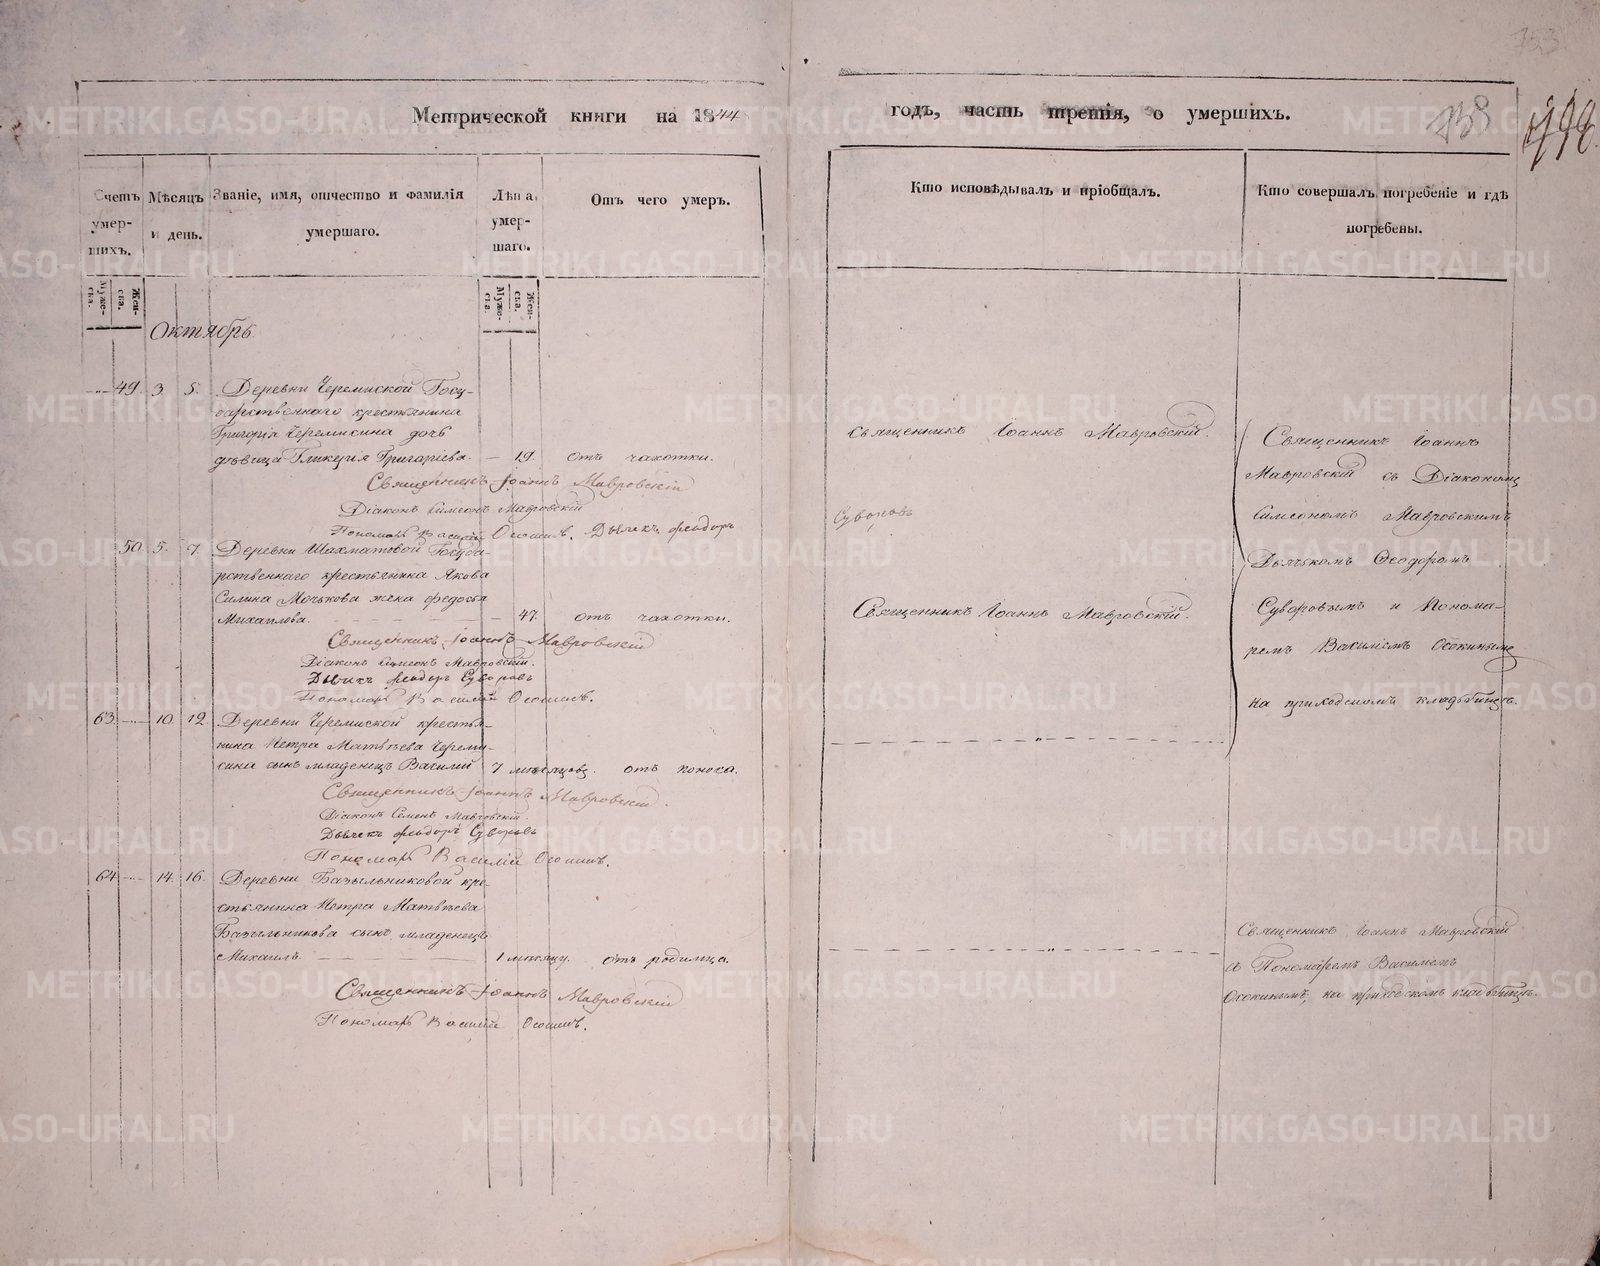 753
Метрической книги на 1844
годъ, часть третія, о умершихъ.
138
Счетъ умер-шихъ.
Мѣсяцъ и день.
Званіе, имя, отчество и фамилія умершаго.
Лѣта умер-шаго.
Отъ чего умеръ.
Кто исповѣдывалъ и пріобщалъ.
Кто совершалъ погребеніе и гдѣ погребены.
Муже-ска.
Жен-ска.
Муже-ска.
Жен-ска.
Октябрь
49. 3. 5. Деревни Черемиской Госу-
дарственнаго крестьянина
Григорія Черемисина дочь
дѣвица Гликерія Григоріева. — 19. отъ чахотки.
Священникъ Іоаннъ Мавровскій.
Священникъ Іоаннъ Мавровскій
Діаконъ Симеонъ Мавровскій
Пономарь Василій Осокинъ. Дьячекъ Федоръ
Суворовъ
50. 5. 7. Деревни Шахматовой Госуда-
рственнаго крестьянина Якова
Силина Мочькова жена Федосья
Михаилова. — 47. отъ чахотки.
Священникъ Іоаннъ Мавровскій.
Священникъ Іоаннъ Мавровскій
Діаконъ Симеонъ Мавровскій.
Дьячекъ Федоръ Суворовъ
Пономарь Василій Осокинъ.
63. 10. 12. Деревни Черемиской крестья-
нина Петра Матвѣева Череми-
сина сынъ младенецъ Василій 7 мѣсяцовъ. отъ поноса.
Священникъ Іоаннъ Мавровскій.
Діаконъ Семенъ Мавровскій.
Дьячекъ Федоръ Суворовъ
Пономарь Василій Осокинъ.
Священникъ Іоаннъ
Мавровскій съ Діакономъ
Симеономъ Мавровскимъ
Дьячкомъ Ѳеодоромъ
Суворовымъ и Понома-
ремъ Василіемъ Осокинымъ
на приходскомъ кладбищѣ.
64. 14. 16. Деревни Базыльниковой кре-
стьянина Петра Матвѣева
Базыльникова сынъ младенецъ
Михаилъ — 1 мѣсяцу. отъ родимца.
Священникъ Іоаннъ Мавровскій
Пономарь Василій Осокинъ.
Священникъ Іоаннъ Мавровскій
съ Пономаремъ Василіемъ
Осокинымъ, на приходскомъ кладбищѣ.
METRIKI.GASO-URAL.RU